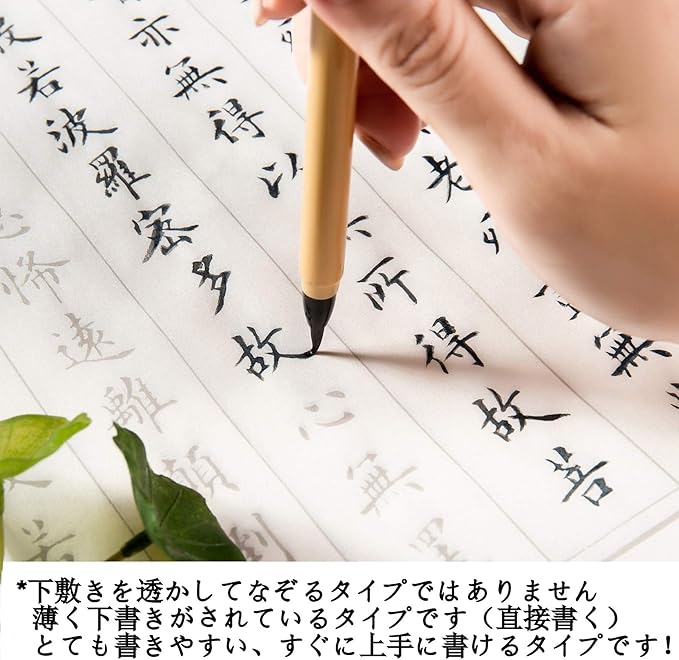 老死無
亦無得以所得故菩
般若波羅密多故心無罣
怖遠離顛倒
若
*下敷きを透かしてなぞるタイプではありません
薄く下書きがされているタイプです（直接書く）
とても書きやすい、すぐに上手に書けるタイプです！